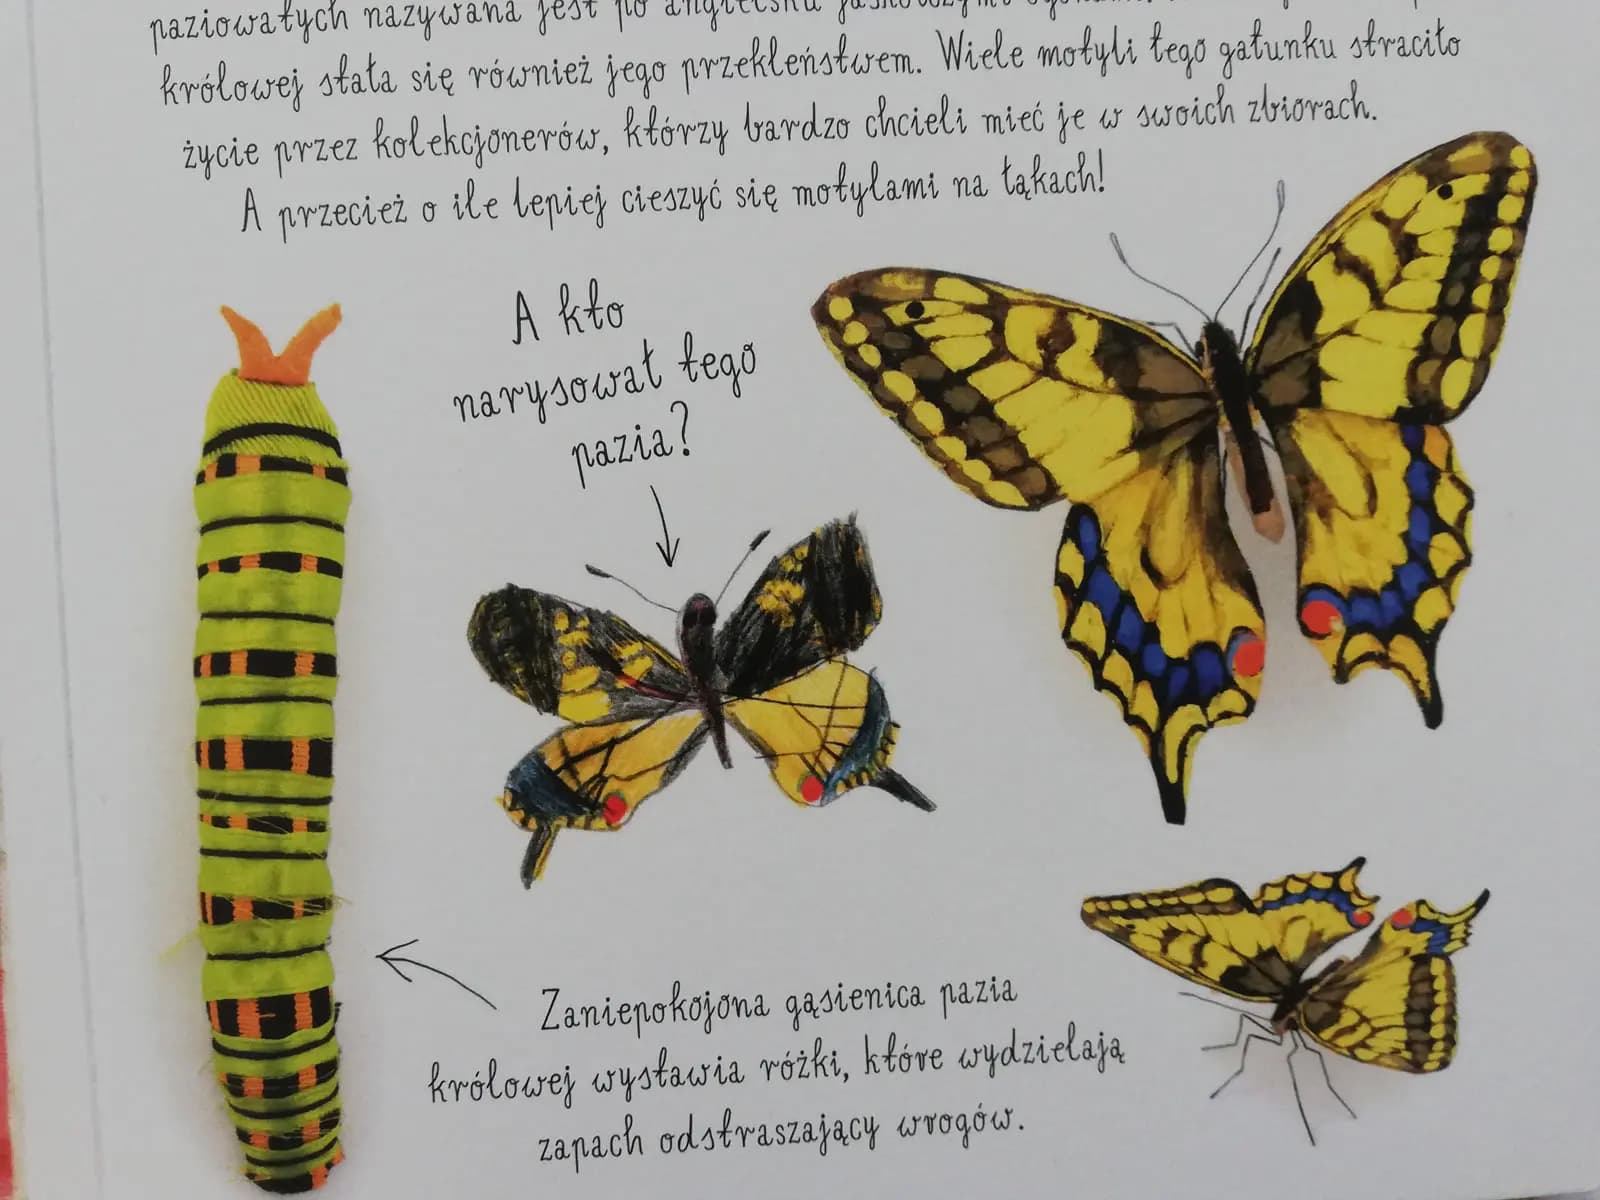 paziowatych nazywana jest po angielsku jaskółczymi ogonami.
królowej stała się również jego przekleństwem. Wiele motyli tego gatunku straciło
życie przez kolekcjonerów, którzy bardzo chcieli mieć je w swoich zbiorach.
A przecież o ile lepiej cieszyć się motylami na łąkach!
A kto
narysował tego
pazia?
Zaniepokojona gąsienica pazia
królowej wystawia różki, które wydzielają
zapach odstraszający wrogów.